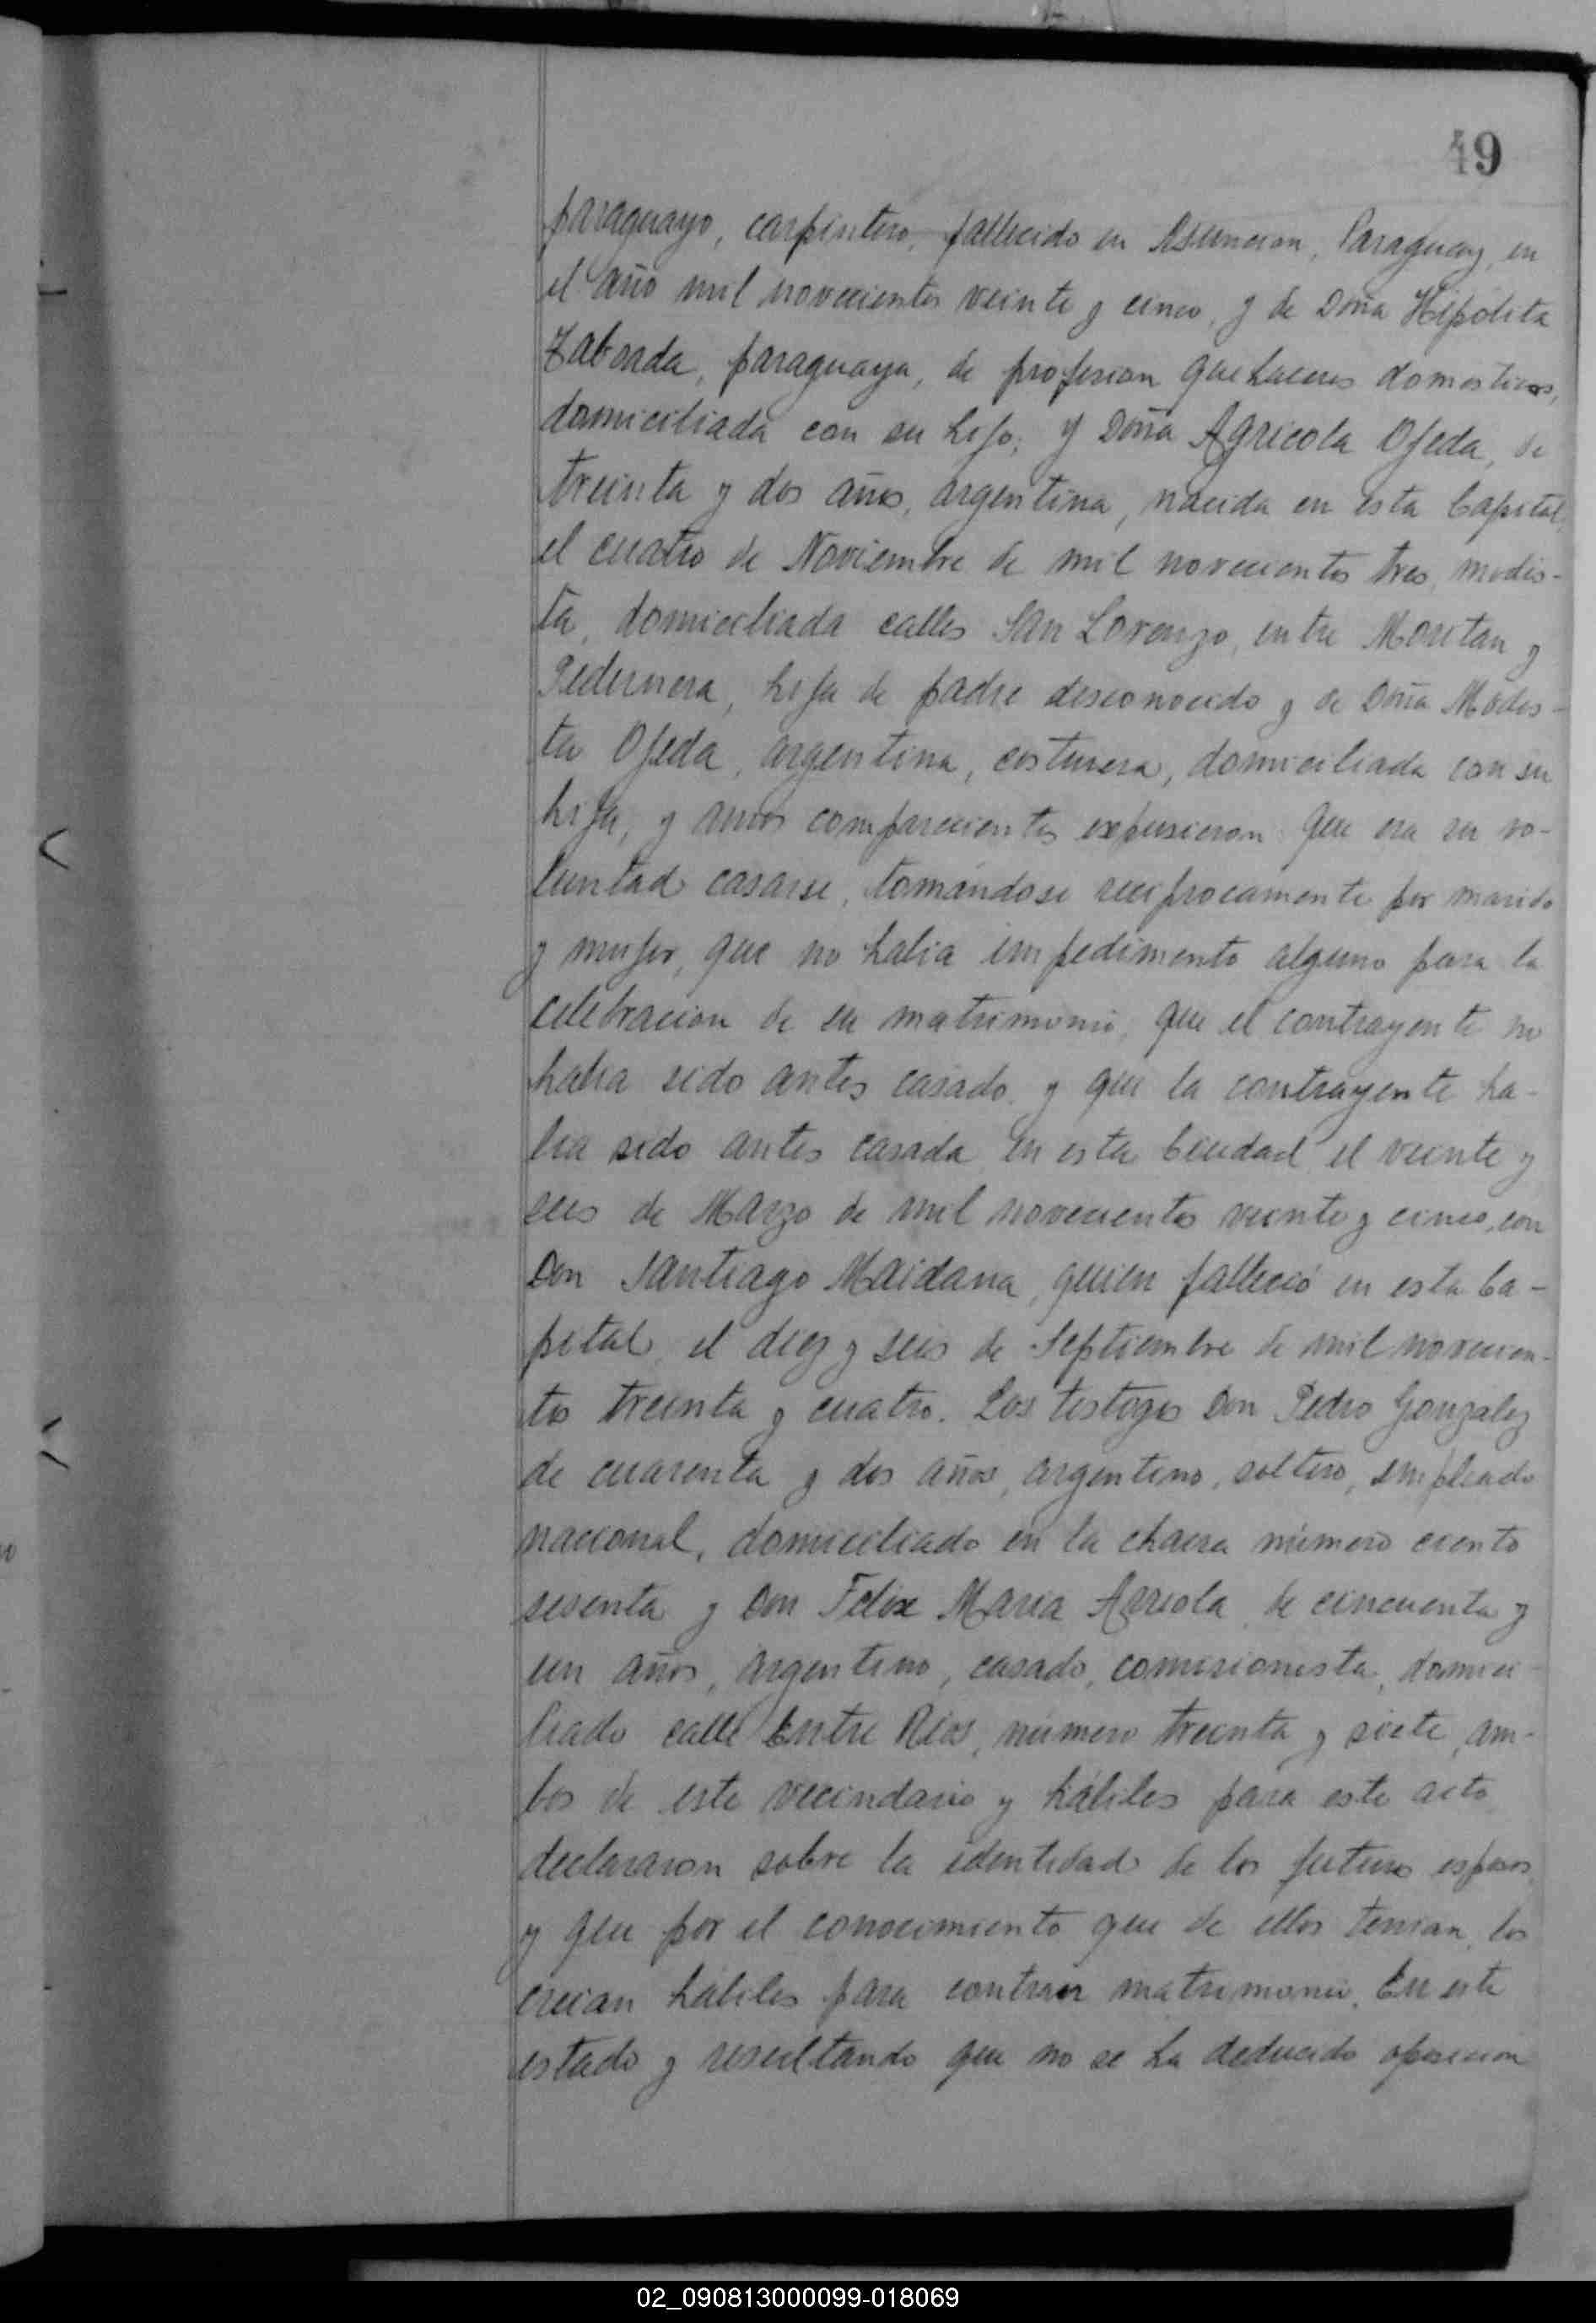 49
paraguayo, carpintero, fallecido en Asuncion, Paraguay, en
el año mil novecientos veinte y cinco, y de Doña Hipolita
Zaborda, paraguaya, de profesion quehaceres domesticos,
domiciliada con su hijo, y Doña Agricola Ojeda, de
treinta y dos años, argentina, nacida en esta Capital,
el cuatro de Noviembre de mil novecientos tres, modis-
ta, domiciliada calles San Lorenzo, entre y
Pedernera, hija de padre desconocido y de Doña Modes-
ta Ojeda, argentina, costurera, domiciliada con su
hija, y comparecientes expusieron que era su vo-
luntad casarse, tomándose reciprocamente por marido
y mujer, que no habia impedimento alguno para la
celebracion de su matrimonio, que el contrayente no
habia sido antes casado y que la contrayente ha-
bia sido antes casada en esta Ciudad el veinte y
seis de Marzo de mil novecientos veinte y cinco, con
Don Santiago Maidana, quien falleció en esta Ca-
pital, el diez y seis de Septiembre de mil novecien-
tos treinta y cuatro. Los testigos Don Pedro Gonzalez
de cuarenta y dos años, argentino, soltero, empleado
nacional, domiciliado en la chacra número ciento
sesenta y Don Felix Maria Arriola de cincuenta y
un años, argentino, casado, comisionista, domici-
liado calle Entre Rios, número treinta y siete, am-
bos de este vecindario y hábiles para este acto
declararon sobre la identidad de los futuros esposos,
y que por el conocimiento que de ellos tenian, los
creian habiles para contraer matrimonio. En este
estado y resultando que no se ha deducido oposicion
02_090813000099-018069